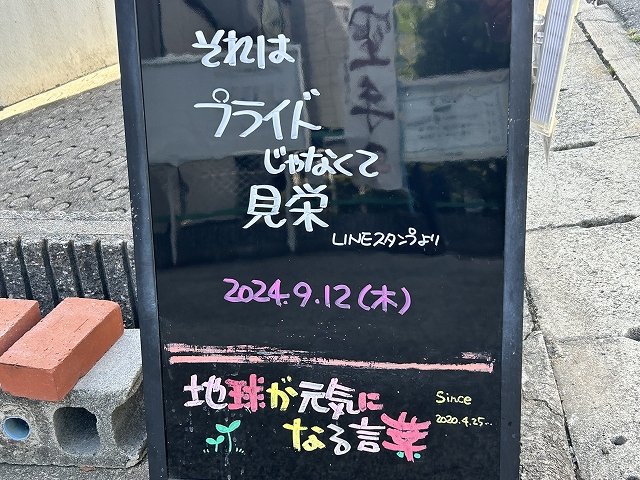 それは
プライド
じゃなくて
見栄
LINEスタンプより
2024.9.12(木)
地球が元気に
なる言葉
Since
2020.4.25..